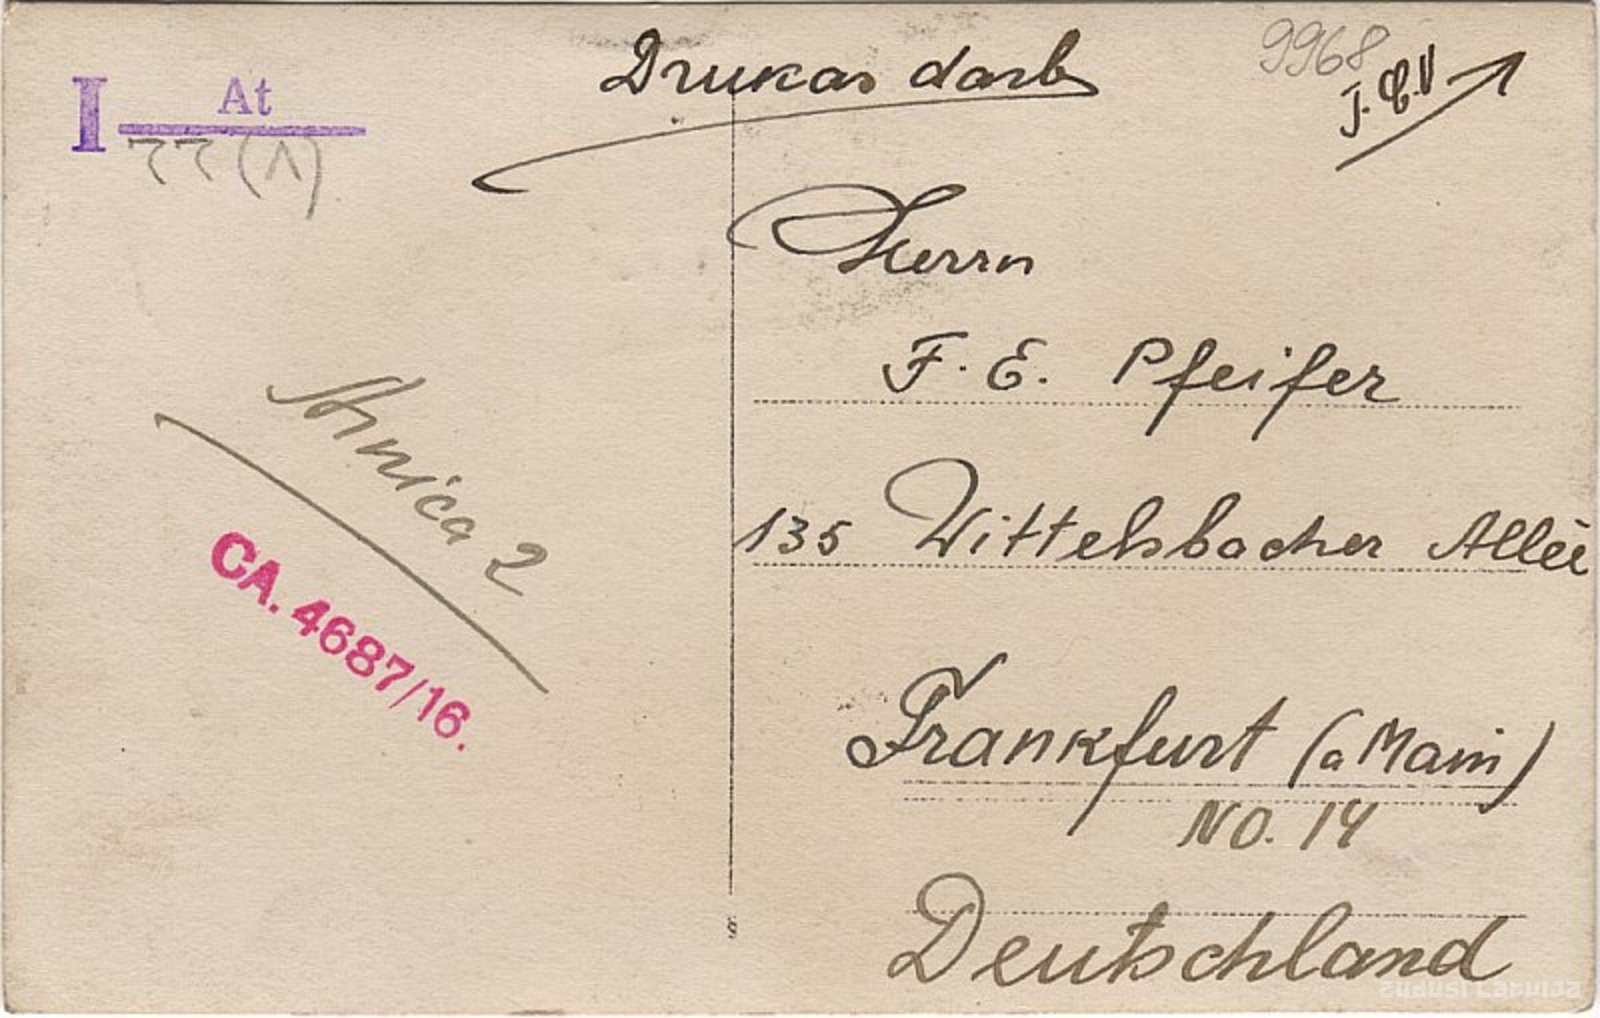 Drukas darbs
9968
T.C.V
I At
77(1)
Herrn
F. E. Pfeifer
135 Wittelsbacher Allée
Frankfurt (a Main)
NO. 14
Deutschland
2
CA. 4687/16.
zudusi Latvija